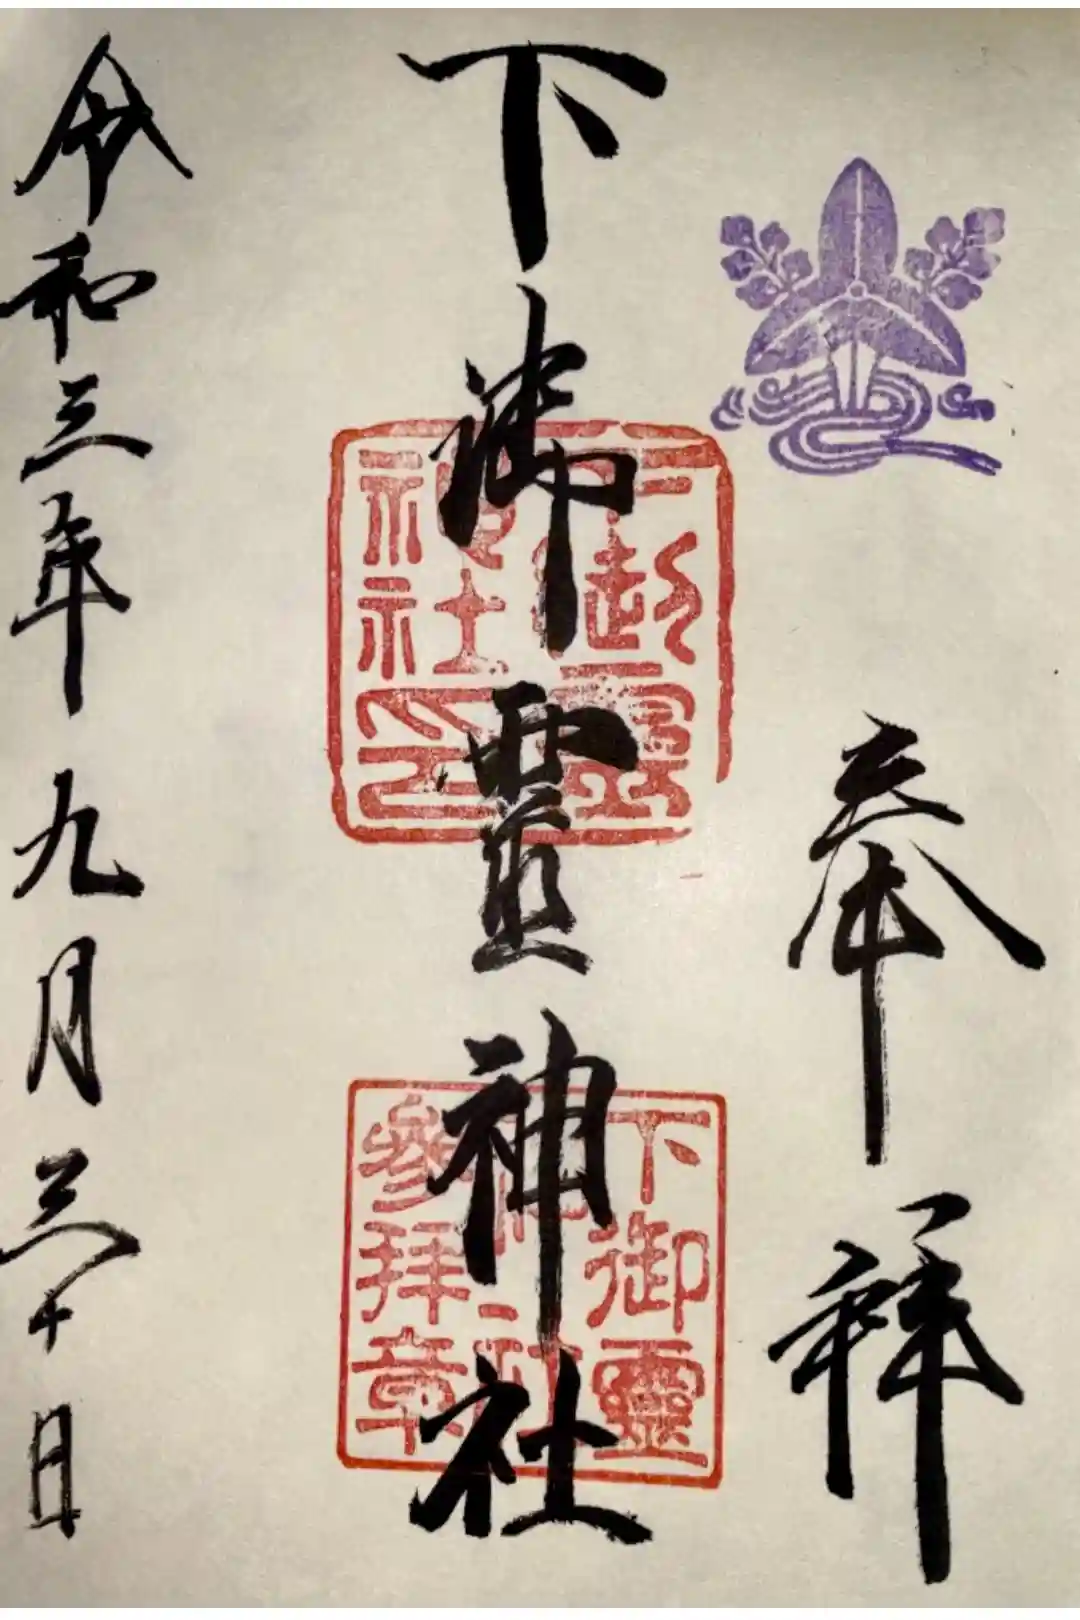 奉拝
下御霊神社
下御霊
神社印
下御靈
神社
參拜章
令和三年九月三十日